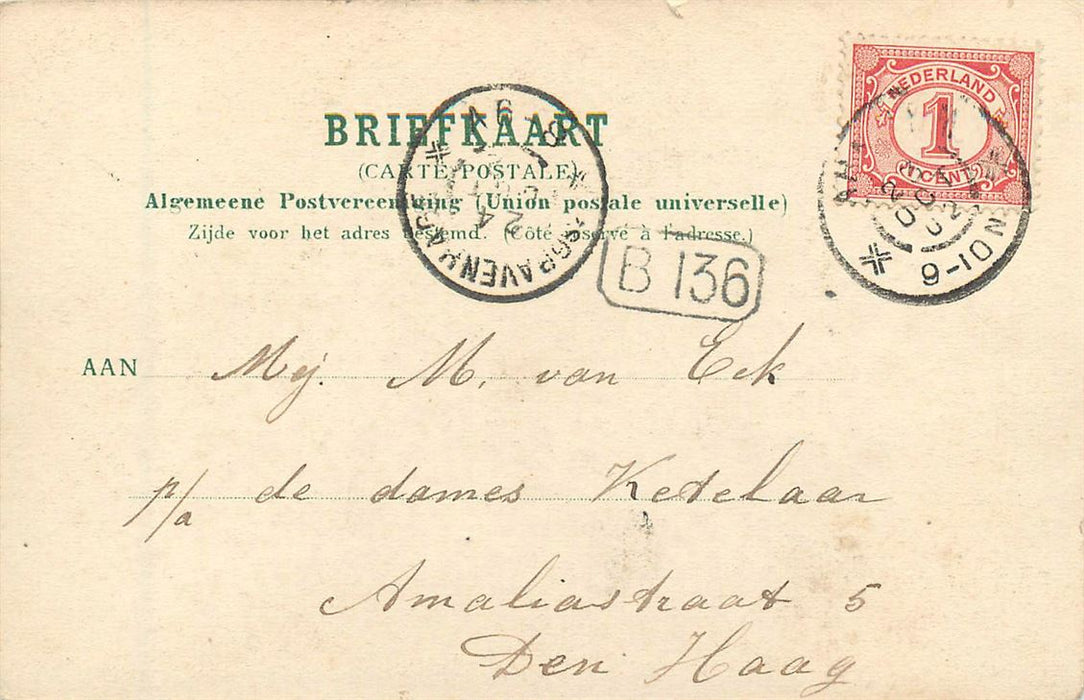 NEDERLAND
1
1 CENT
BRIEFKAART
(CARTE POSTALE)
Algemeene Postvereeniging (Union postale universelle)
Zijde voor het adres bestemd. (Côté réservé à l'adresse.)
'SGRAVENHAGE
9-10N
B 136
AAN Mej. M. van Eck
p/a de dames Ketelaar
Amaliastraat 5
Den Haag